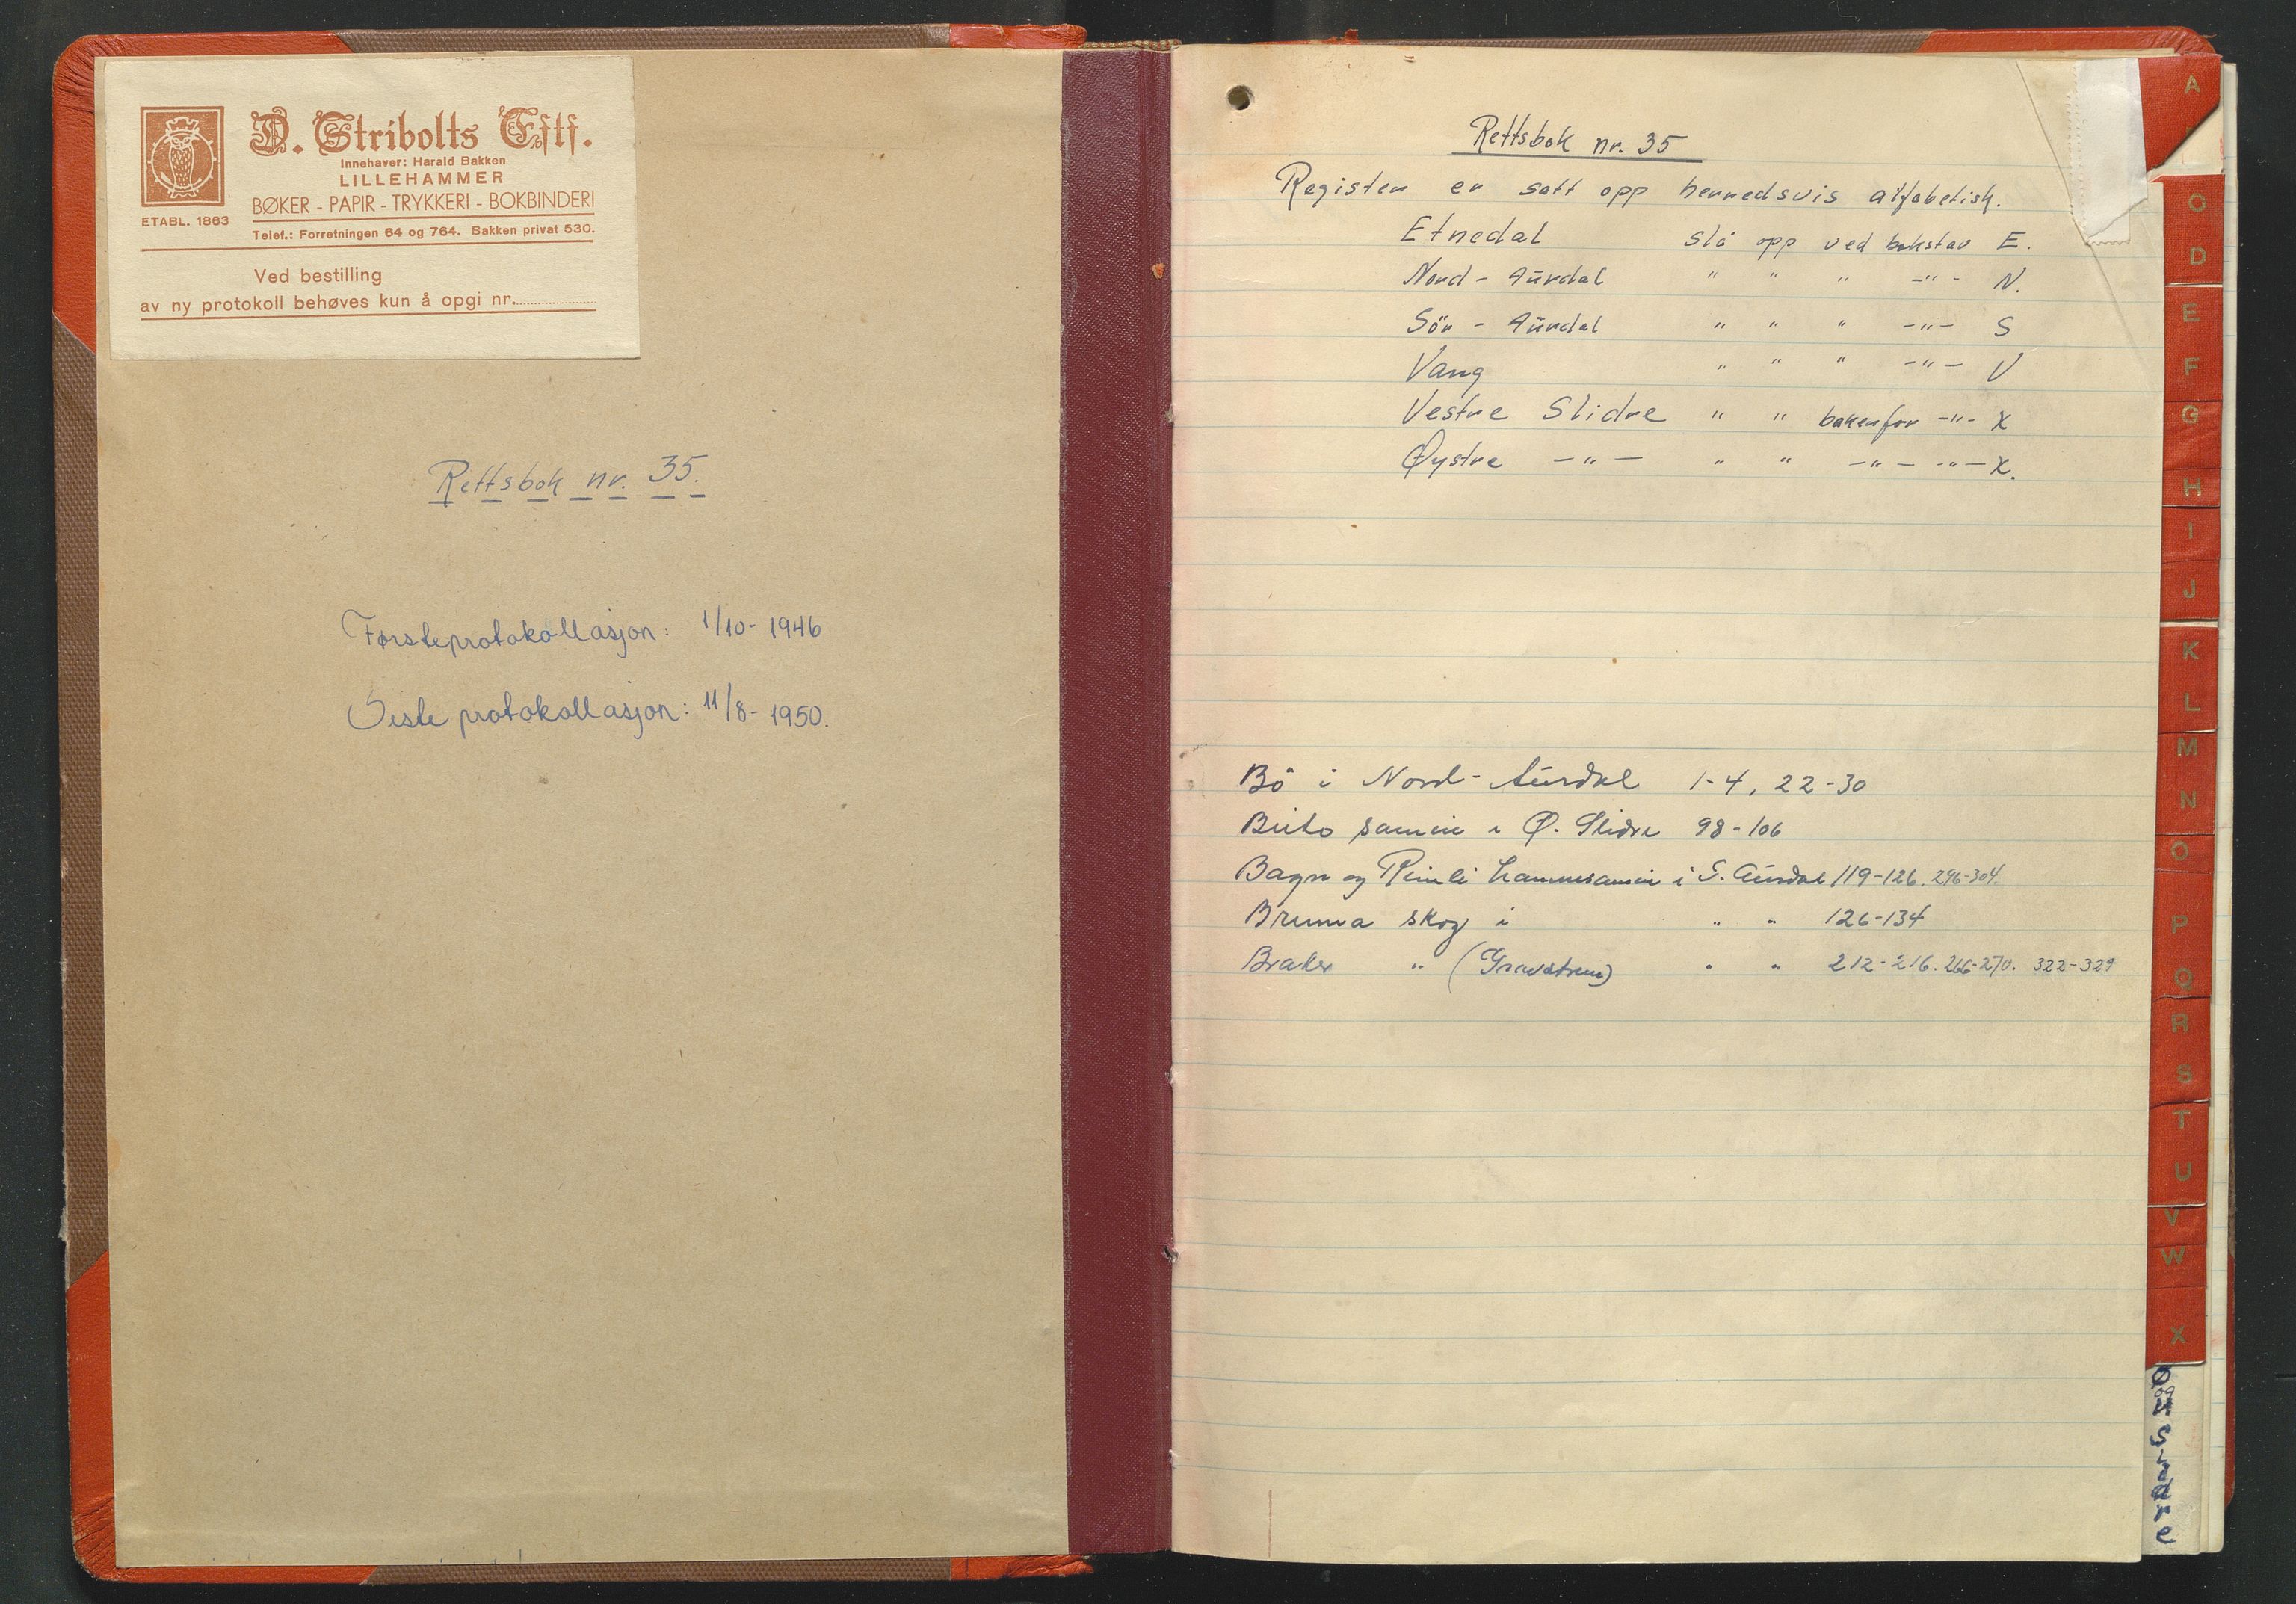 D. Stribolts Eftf.
Innehaver: Harald Bakken
LILLEHAMMER
BØKER - PAPIR - TRYKKERI - BOKBINDERI
ETABL. 1863
Telef.: Forretningen 64 og 764. Bakken privat 530.
Ved bestilling
av ny protokoll behøves kun å opgi nr.
Rettsbok nr. 35.
Førsteprotokollasjon: 1/10- 1946
Siste protokollasjon: 11/8- 1950.
Rettsbok nr. 35
Register er satt opp herredsvis alfabetisk.
Etnedal slå opp ved bokstav E.
Nord - Aurdal " " " -"- N.
Sör - Aurdal " " " -"- S
Vang " " " -"- V
Vestre Slidre " " bakenfor -"- X
Øystre -"- " " -"- -"- X.
Bö i Nord-Aurdal 1-4, 22-30
Beito sameie i Ø. Slidre 98-106
Bagn og Reinli i S. Aurdal 119-126. 296-304.
Bruma skog i " " 126-134
" " " 212-216. 266-270. 322-329
A
O
D
E
F
G
H
I
J
K
L
M
N
O
P
Q
R
S
T
U
V
W
X